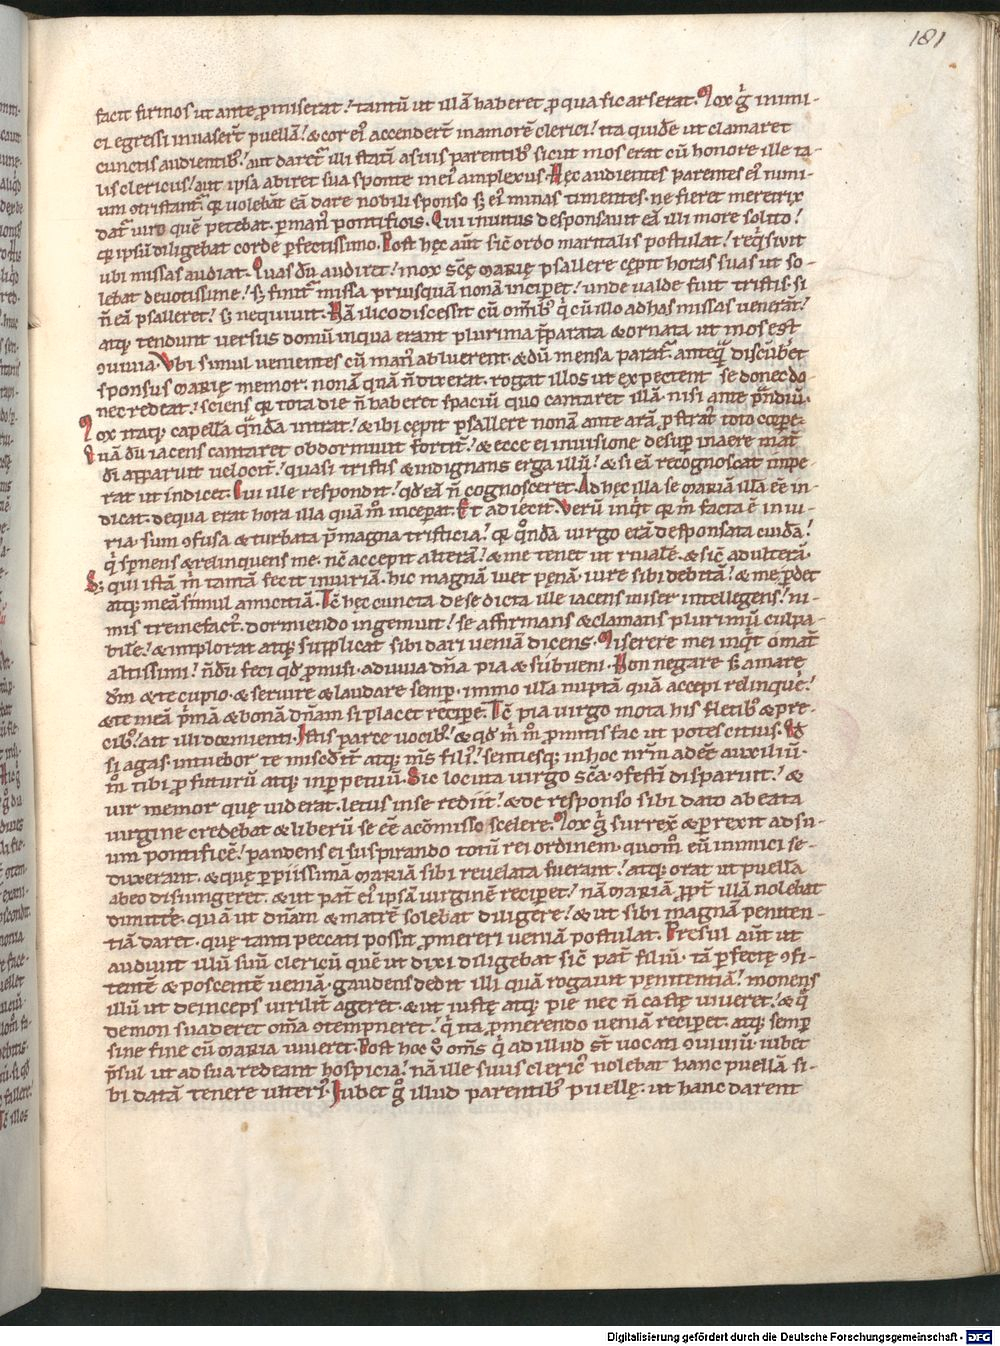 181
facit firmos ut ante ꝓmiserat. tantū ut illā haberet ꝓ qua sic arserat. Mox gͥ inimi-
ci egressi invasert̄ puellā. & cor eiꝰ accendert̄ in amorē clerici. ita quidē ut clamaret
cunctis audientibꝰ. aut daret᷑ illi statī a suis parentibꝰ sicut mos erat cū honore ille ta-
lis clericus. aut ipsa abiret sua sponte in eiꝰ amplexus. Hęc audientes parentes eiꝰ nimi-
um ꝯtristant᷑ qꝫ volebāt eā dare nobili sponso sꝫ eiꝰ minas timentes. ne fieret meretrix
dat᷑ viro quē petebat. ꝑ manꝰ pontificis. Qui invitus desponsavit eā illi more solito.
qꝫ ipsū diligebat corde ꝑfectissimo. Post hęc aūt sic̄ ordo maritalis postulat. reqͥsivit
ubi missas audiat. Quas dū audiret. mox scę̄ marię psallere cępit horas suas ut so-
lebat devotissime. sꝫ finit᷑ missa priusquā nonā inciꝑet. unde valde fuit tristis. si
n̄ eā psalleret. sꝫ nequivit. Nā ilico discessit cū om̄ibꝰ qͥ cū illo ad has missas venerāt.
atqꝫ tendunt versus domū in qua erant plurima p̄parata & ornata ut mos est
ꝯvivia. Ubi simul venientes cū manꝰ abluerent. & dū mensa parat᷑. anteqꝫ discūbet
sponsus marię memor. nonā quā n̄ dixerat. rogat illos ut expectent se donec do-
nec redeat. sciens qꝫ tota die n̄ haberet spaciū quo cantaret illā. nisi ante p̄ndiū.
Mox itaqꝫ capellā qͣndā intrat. & ibi cępit psallere nonā ante arā ꝓstratꝰ toto corꝑe.
Quā dū iacens cantaret obdormivit fortit᷑. & ecce ei in visione desuꝑ in aere mat᷑
dī apparuit velocit᷑. quasi tristis & indignans erga illū. & si eā recognoscat impe-
rat ut indicet. Cui ille respondit. qđ eā n̄ cognosceret. Ad hęc illa se mariā illā eē in-
dicat. de qua erat hora illa quā m̊ inceꝑat. Et adiecit. Verū inqͥt qꝫ m̍ facta ē iniu-
ria. sum ꝯfusa & turbata p̄ magna tristicia. qꝫ qͦndā virgo erā desponsata cuidā.
qͥ spnens & relinquens me. nc̄ accepit alterā. & me tenet ut rivalē. & sic̄ adulterā.
Sꝫ qui istā m̍ tantā fecit iniuriā. hic magnā luet pęnā. iure sibi debitā. & me ꝑdet
atqꝫ meā simul amicitiā. Tc̄ hęc cuncta de se dicta ille iacens miser intellegens. ni-
mis tremefactꝰ. dormiendo ingemuit. se affirmans & clamans plurimū culpa-
bile. & implorat atqꝫ supplicat sibi dari veniā dicens. Miserere mei inqͥt o mat᷑
altissimi. n̄dū feci qđ ꝓmisi. adiuva dn̄a pia & subveni. Non negare sꝫ amare
dm̄ & te cupio. & servire & laudare semꝑ. immo illā nuptā quā accepi relinquere.
& te meā pͥmā & bonā dn̄am si placet reciꝑe. Tc̄ pia virgo mota his fletibꝰ & pre-
cibꝰ. ait illi dormienti. Istis parce vocibꝰ. & qđ m̍ m̊ ꝓmittis fac ut potes citius. Qđ
si agas. intuebor te misc̄dit᷑ atqꝫ ut mꝰ filiꝰ. sentiesqꝫ in hoc nr̄m adeē auxiliū.
m̊ tibi ꝓfuturū atqꝫ in ꝑpetuū. Sic locuta virgo scā. ꝯfestī disparuit. &
vir memor quę viderat. letus in se rediit. & de responso sibi dato a beata
virgine credebat & liberū se eē a cōmisso scelere. Mox gͥ surrex̄ & ꝑrexit ad su-
um pontificē. pandens ei suspirando totū rei ordinem. quom̊ eū inimici se-
duxerant. & quę ꝑ piissimā mariā sibi revelata fuerant. atqꝫ orat ut puellā
ab eo disiungeret. & ut pat᷑ eiꝰ ipsā virginē reciꝑet. nā mariā ꝓpt᷑ illā nolebat
dimittē. quā ut dn̄am & matrē solebat diligere. & ut sibi magnā peniten-
tiā daret. quę tanti peccati possit ꝓmereri veniā postulat. Presul aūt ut
audivit illū suū clericū quē ut dixi diligebat sic̄ pat᷑ filiū. tā ꝑfectę ꝯfi-
tentē & poscentē veniā. gaudens dedit illi quā rogavit pęnitentiā. monens
illū ut deinceps virilit᷑ ageret. & ut iustę atqꝫ pie nec n̄ castę viveret. & qͥͣ
demon suaderet om̄ia ꝯtempneret. qͥ ita ꝓmerendo veniā reciꝑet. atqꝫ semꝑ
sine fine cū maria viveret. Post hoc v̊ om̄s qͥ ad illud st̄ vocati ꝯviviū iubet
p̄sul ut ad sua redeant hospicia. nā ille suus clericꝰ nolebat hanc puellā si-
bi datā tenere ulteriꝰ. Iubet gͦ illud parentibꝰ puellę. ut hanc darent
Digitalisierung gefördert durch die Deutsche Forschungsgemeinschaft - DFG